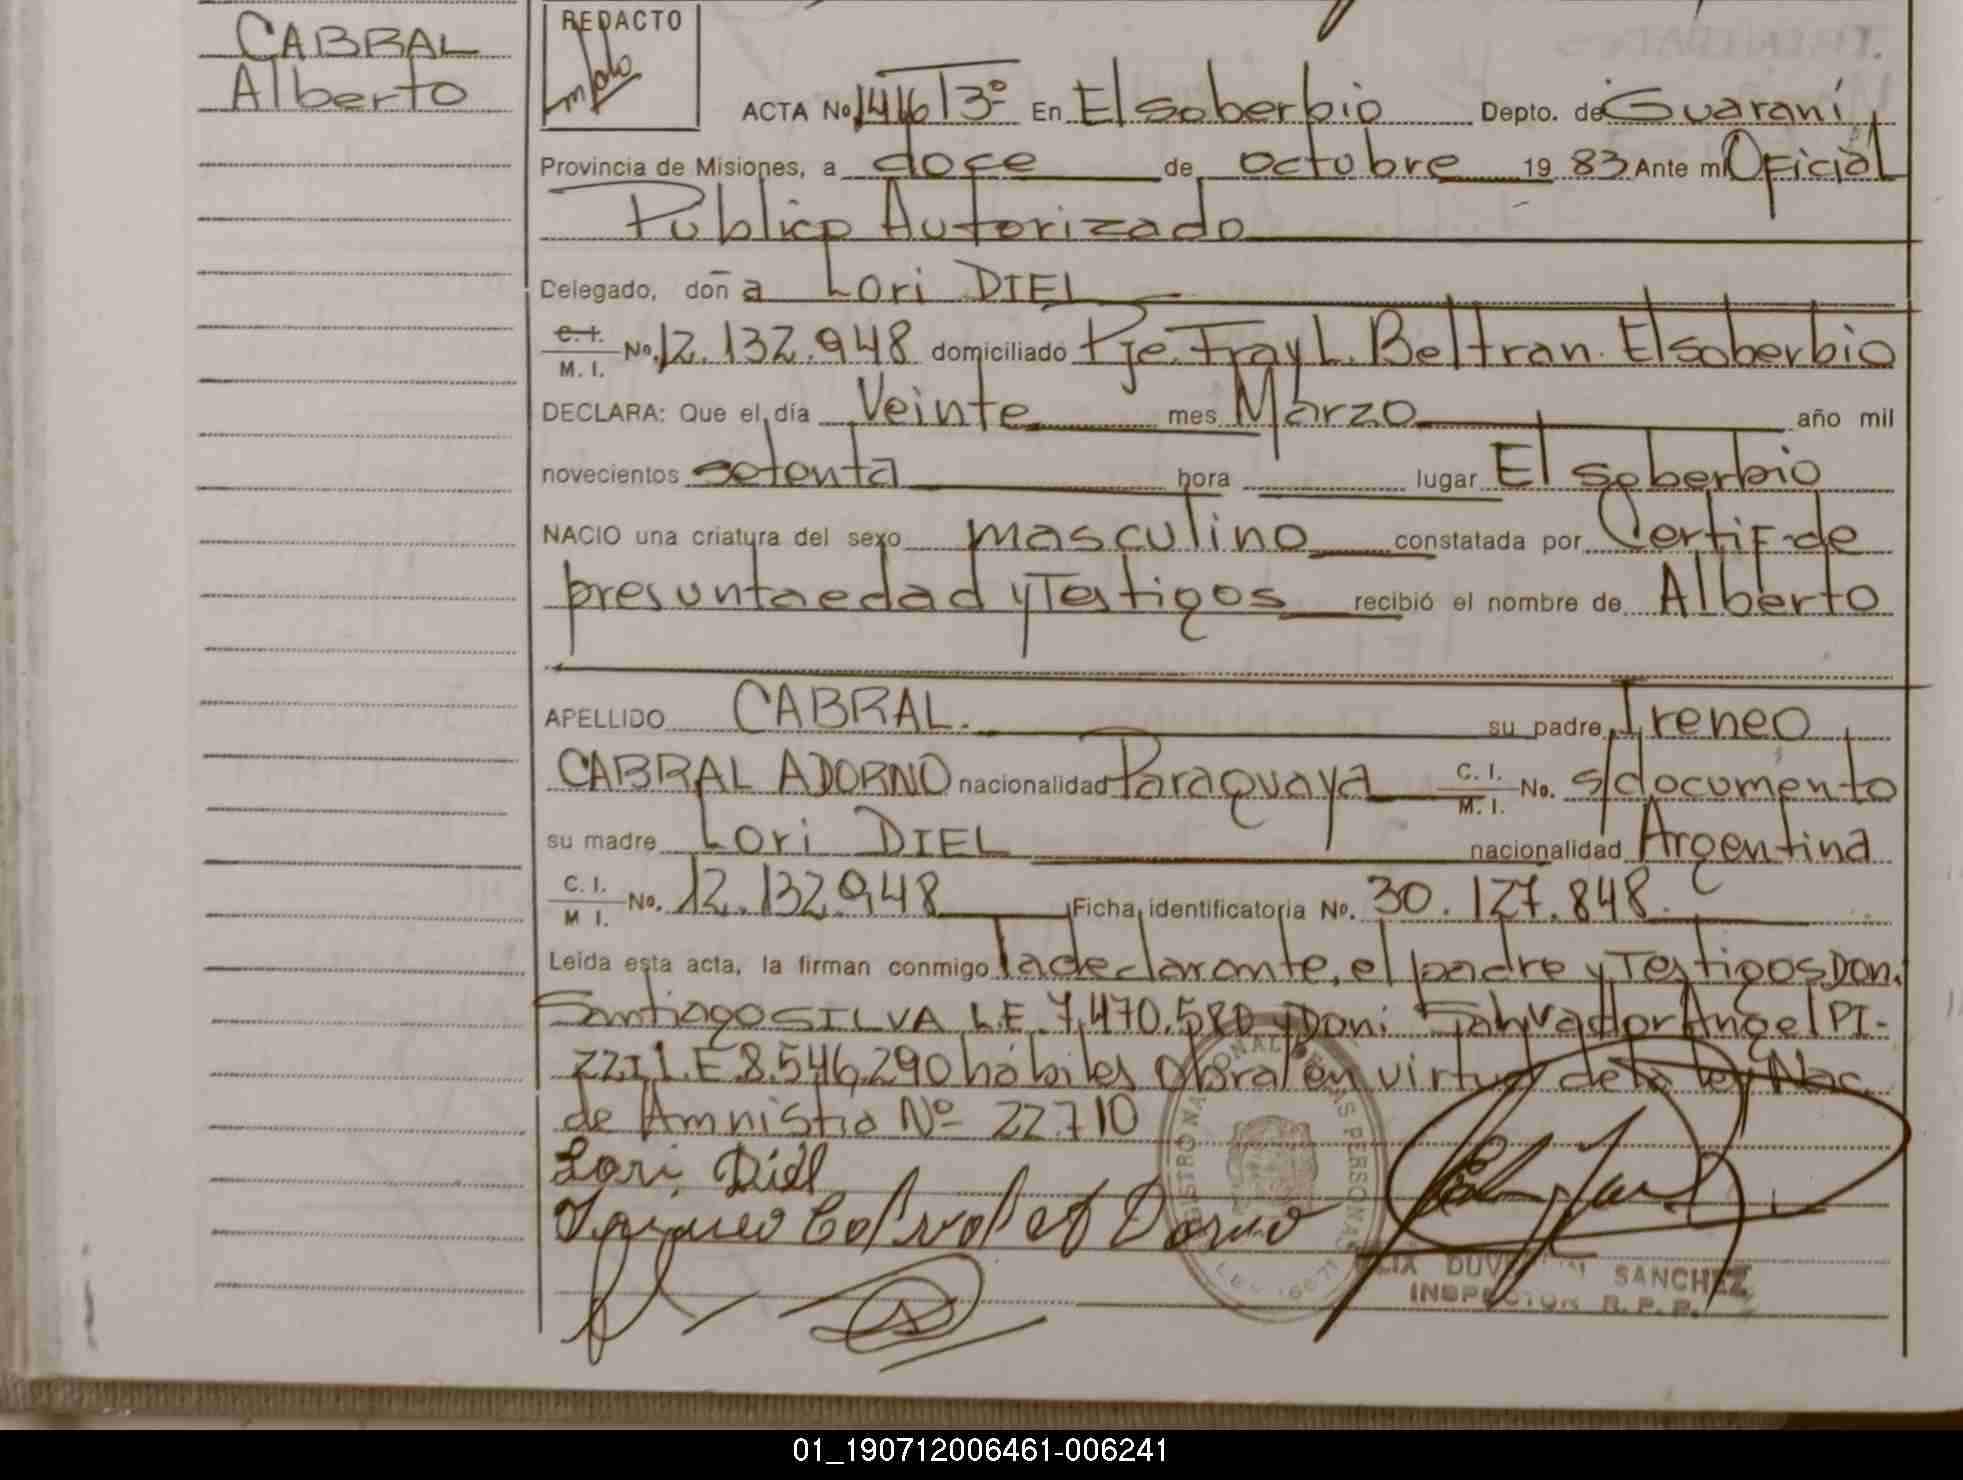 CABRAL
Alberto
REDACTO
ACTA No 1416 T3º En El soberbio Depto. de Guaraní
Provincia de Misiones, a doce de octubre 19 83 Ante mi Oficial
Publico Autorizado
Delegado, doña Lori DIEL
C. I. M. I. No. 12.132.948 domiciliado Pje. Fray L. Beltran. El soberbio
DECLARA: Que el día Veinte mes Marzo año mil
novecientos setenta hora lugar El soberbio
NACIO una criatura del sexo masculino constatada por Certif. de
presunta edad y Testigos recibió el nombre de Alberto
APELLIDO CABRAL. su padre Ireneo
CABRAL ADORNO nacionalidad Paraguaya C. I. M. I. No. s/documento
su madre Lori DIEL nacionalidad Argentina
C. I. M I. No. 12.132.948 Ficha identificatoria No. 30.127.848.
Leida esta acta, la firman conmigo la declarante, el padre y Testigos Don.
Santiago SILVA L.E. 7.470.580 y Don: Salvador Angel PI-
ZZI L.E 8.546.290 hábiles Obra en virtud de la ley Nac.
de Amnistia Nº 22.710
Lori Diel
Cabral
SANCHEZ
INSPECTOR R. P. P.
01_190712006461-006241